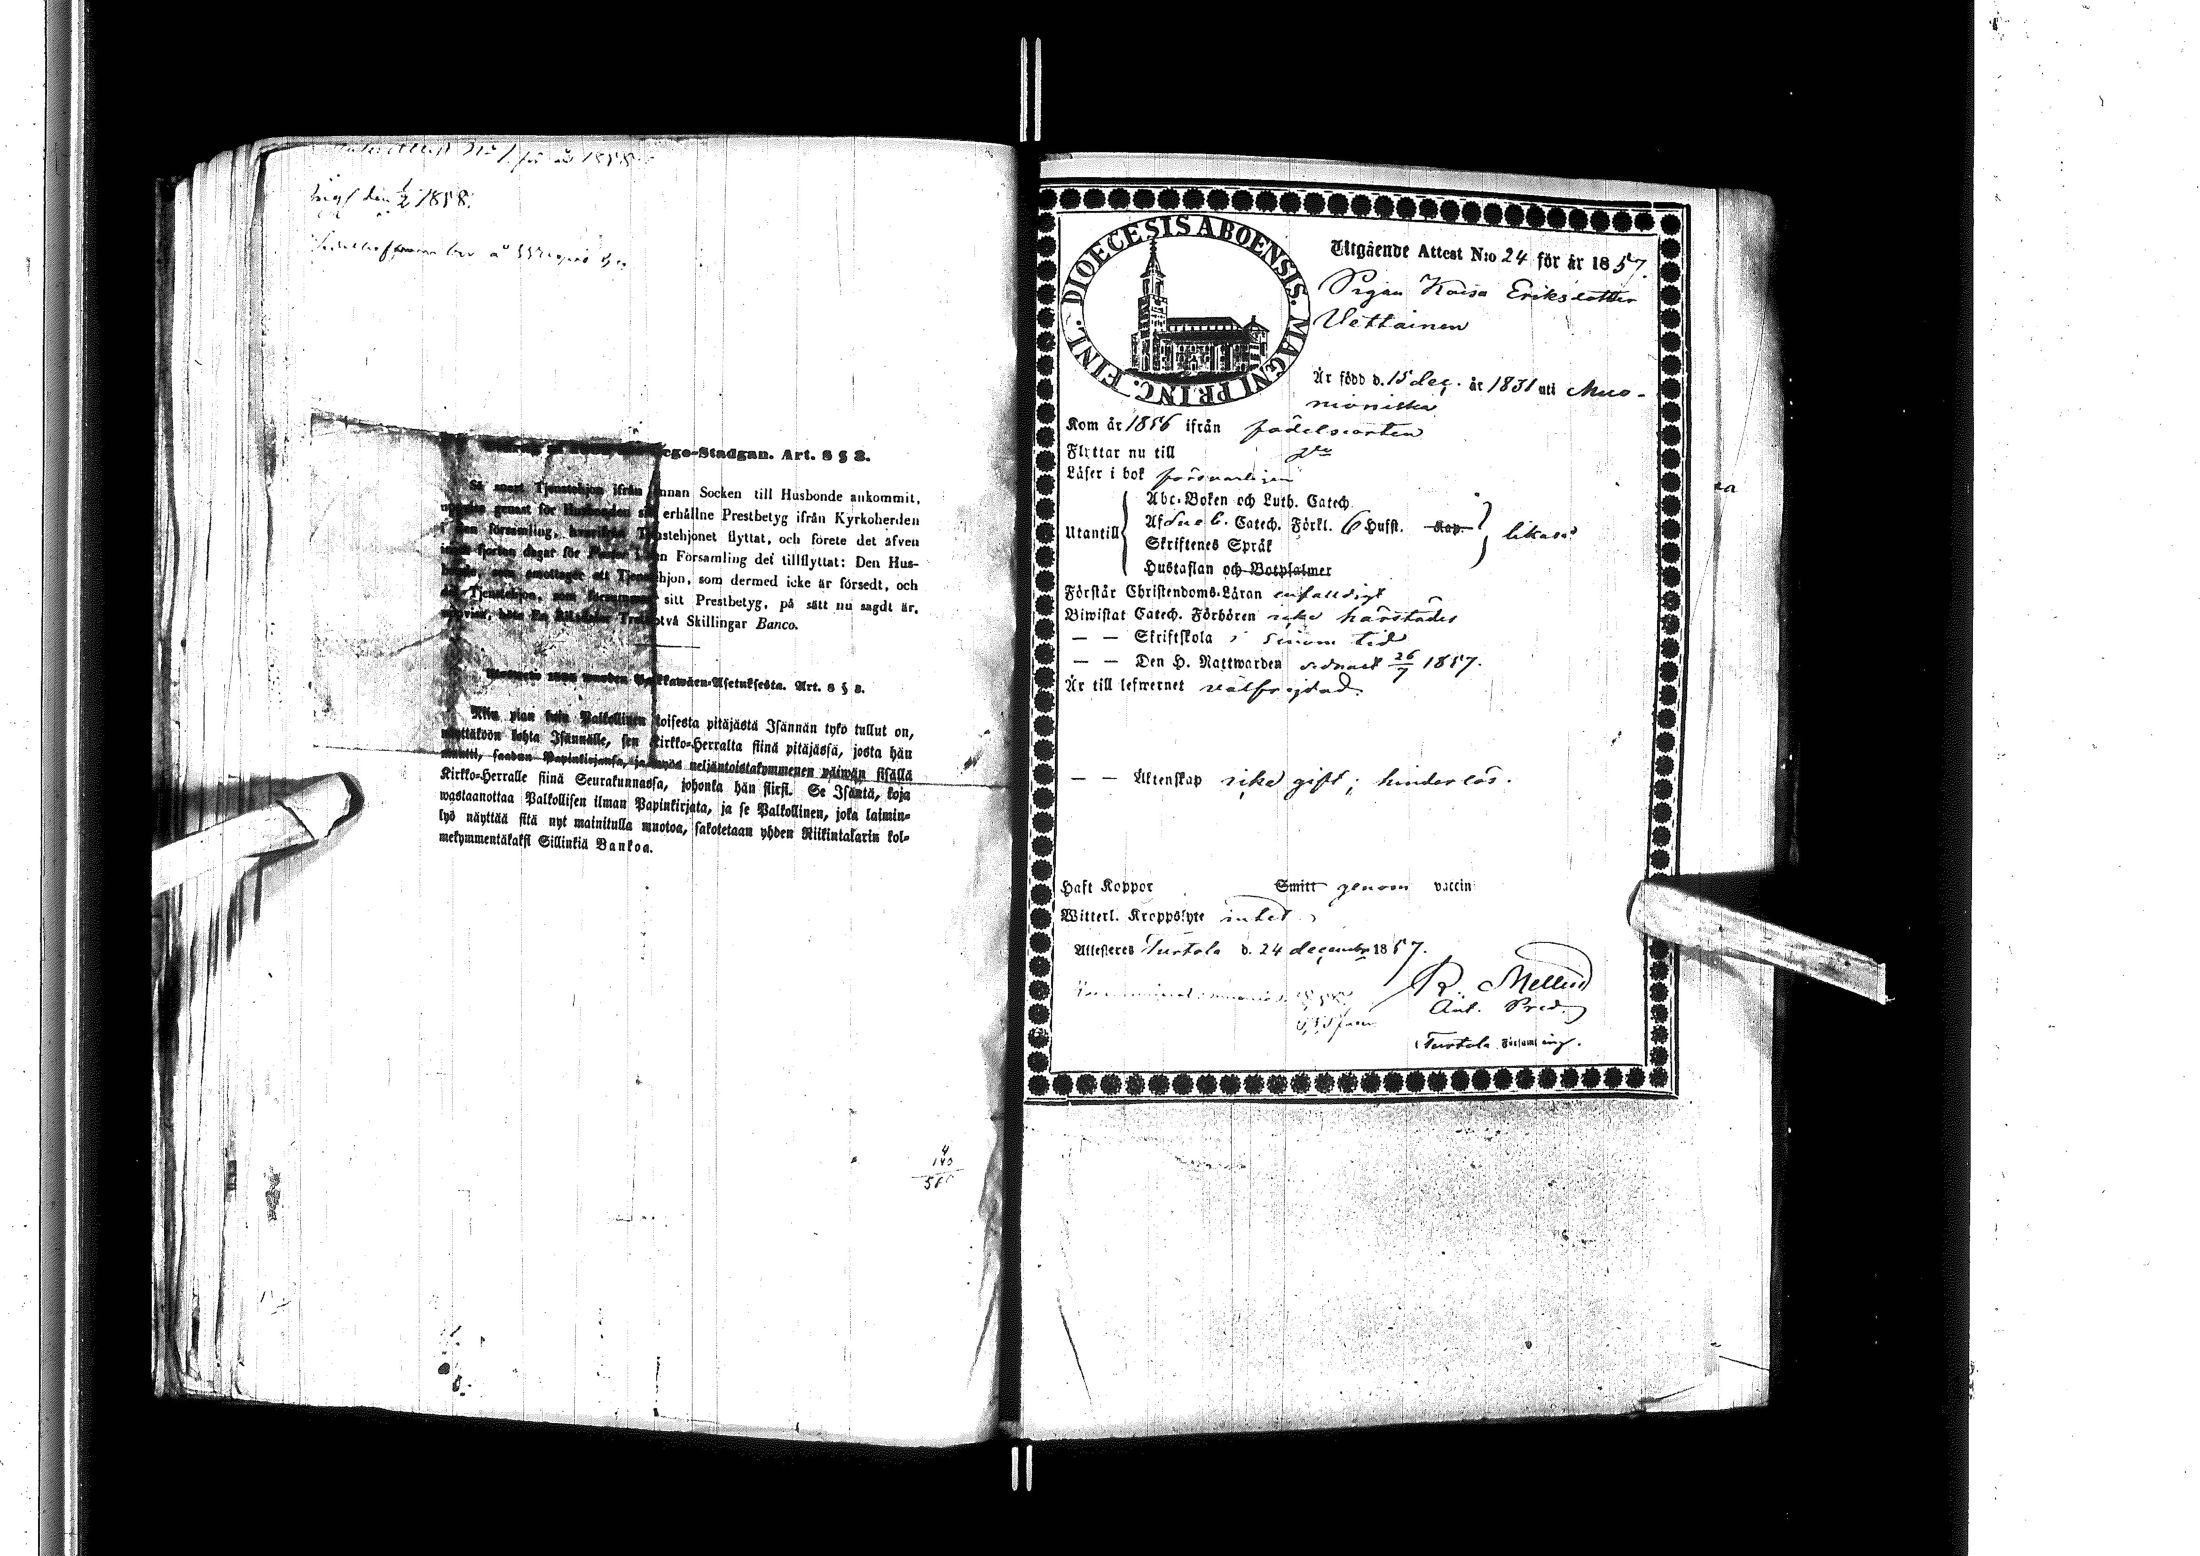 för år 1858
den 1/2 1858.
rego-Stadgan. Art. 8 § 2.
Så snart Tjenstehjon ifrån annan Socken till Husbonde ankommit,
genast för Husbonden sitt erhållne Prestbetyg ifrån Kyrkoherden
den församling, Tjenstehjonet flyttat, och förete det äfven
fjorton dagar för i den Församling det tillflyttat: Den Hus-
som emottager ett Tjenstehjon, som dermed icke är försedt, och
Tjenstehjon, som sitt Prestbetyg, på sätt nu sagdt är,
böte En Riksdaler Trettiotvå Skillingar Banco.
wuoden Palkkawäen-Asetuksesta. Art. 8 § 2.
Niin pian kuin Palkollinen toisesta pitäjästä Isännän tykö tullut on,
näyttäköön kohta Isännälle, sen Kirkko-Herralta siinä pitäjässä, josta hän
muutti, saadun Papinkirjansa, ja myös neljäntoistakymmenen päiwän sisällä
Kirkko-Herralle siinä Seurakunnassa, johonka hän siirsi. Se Isäntä, koja
wastaanottaa Palkollisen ilman Papinkirjata, ja se Palkollinen, joka laimin-
lyö näyttää sitä nyt mainitulla muotoa, sakotetaan yhden Riikintalarin kol-
mekymmentäkaksi Sillinkiä Bankoa.
4
140
DIOECESIS ABOENSIS. MAGNI PRINC. FINL.
Utgående Attest N:o 24 för år 1857.
Pigan Kaisa Eriksdotter
Vettainen
Är född d. 15 dec. år 1831 uti Muo-
nioniska
Kom år 1856 ifrån födelseorten
Flyttar nu till d:o
Läser i bok försvarligen
Utantill
Abc-Boken och Luth. Catech
Af Sueb. Catech. Förkl. 6 Hufst. Kap.
Skriftenes Språk
Hustaflan och Botpsalmer
likaså
Förstår Christendoms-Läran enfaldigt
Biwistat Catech. Förhören icke härstädes
— — Skriftskola i sinom tid
— — Den H. Nattwarden sednast 26/7 1857.
Är till lefwernet välfrejdad
— — Äktenskap icke gift; hinderlös.
Haft Koppor Smitt genom vaccin
Witterl. Kroppslyte intet
Attesteras Turtola d. 24 december 1857.
R. Mellin
Ant. Pred.
i Turtola Församling.